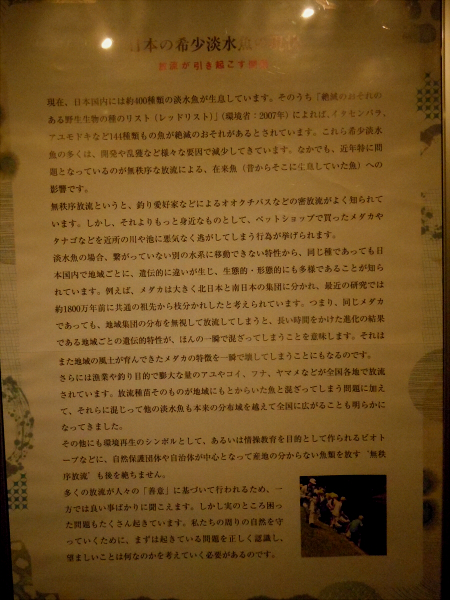 日本の希少淡水魚の現
放流が引き起こす
現在、日本国内には約400種類の淡水魚が生息しています。そのうち「絶滅のおそれの
ある野生生物の種のリスト（レッドリスト）」（環境省：2007年）によれば、イタセンパラ、
アユモドキなど144種類もの魚が絶滅のおそれがあるとされています。これら希少淡水
魚の多くは、開発や乱獲など様々な要因で減少してきています。なかでも、近年特に問
題となっているのが無秩序な放流による、在来魚（昔からそこに生息していた魚）への
影響です。
無秩序放流というと、釣り愛好家などによるオオクチバスなどの密放流がよく知られて
います。しかし、それよりもっと身近なものとして、ペットショップで買ったメダカや
タナゴなどを近所の川や池に悪気なく逃がしてしまう行為が挙げられます。
淡水魚の場合、繋がっていない別の水系に移動できない特性から、同じ種であっても日
本国内で地域ごとに、遺伝的に違いが生じ、生態的・形態的にも多様であることが知ら
れています。例えば、メダカは大きく北日本と南日本の集団に分かれ、最近の研究では
約1800万年前に共通の祖先から枝分かれしたと考えられています。つまり、同じメダカ
であっても、地域集団の分布を無視して放流してしまうと、長い時間をかけた進化の結果
である地域ごとの遺伝的特性が、ほんの一瞬で混ざってしまうことを意味します。それは
また地域の風土が育んできたメダカの特徴を一瞬で壊してしまうことにもなるのです。
さらには漁業や釣り目的で膨大な量のアユやコイ、フナ、ヤマメなどが全国各地で放流
されています。放流種苗そのものが地域にもとからいた魚と混ざってしまう問題に加え
て、それらに混じって他の淡水魚も本来の分布域を越えて全国に広がることも明らかに
なってきました。
その他にも環境再生のシンボルとして、あるいは情操教育を目的として作られるビオト
ープなどに、自然保護団体や自治体が中心となって産地の分からない魚類を放す“無秩
序放流”も後を絶ちません。
多くの放流が人々の「善意」に基づいて行われるため、一
方では良い事ばかりに聞こえます。しかし実のところ困っ
た問題もたくさん起きています。私たちの周りの自然を守
っていくために、まずは起きている問題を正しく認識し、
望ましいことは何なのかを考えていく必要があるのです。